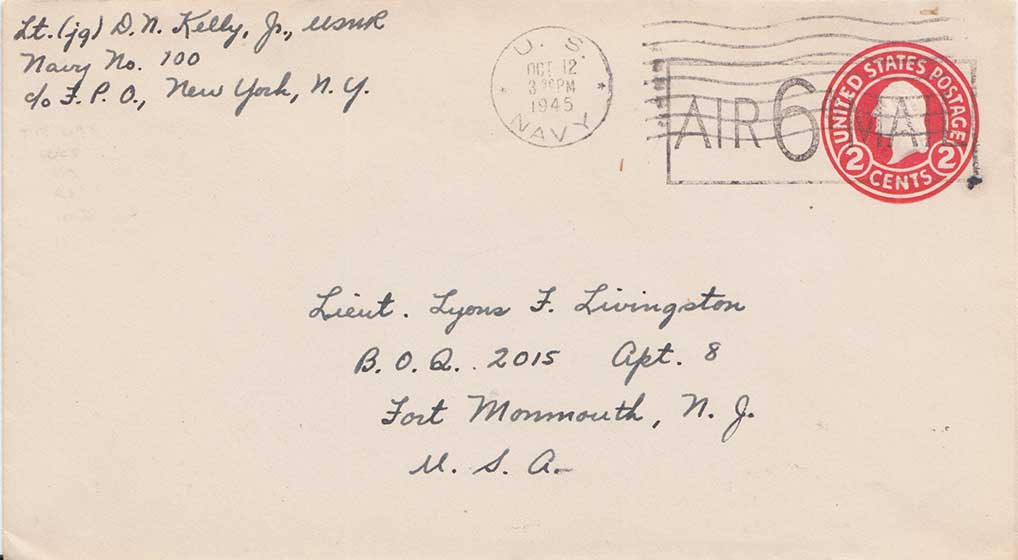 Lt. (jg) D. N. Kelly, Jr., USNR
Navy No. 100
c/o F. P. O., New York, N. Y.
U. S.
OCT 12
PM
1945
NAVY
AIR 6 MAIL
UNITED STATES POSTAGE
2 CENTS 2
Lieut. Lyons F. Livingston
B. O. Q. 2015 Apt. 8
Fort Monmouth, N. J.
U. S. A.